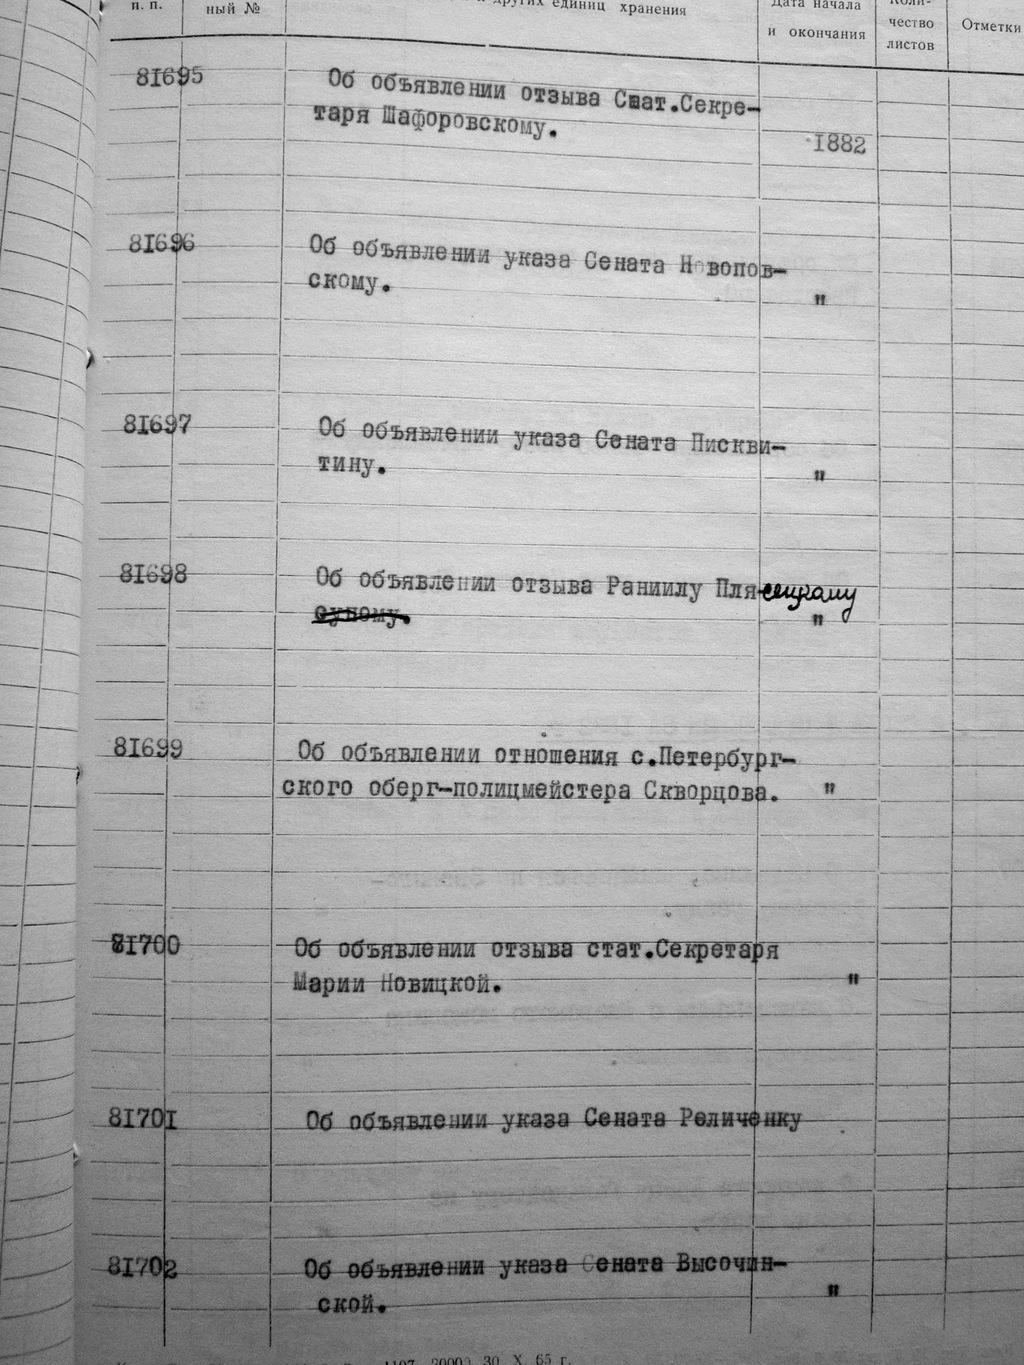 п. п.
ный №
других единиц хранения
Дата начала
и окончания
Коли-
чество
листов
Отметки
81695 Об объявлении отзыва Стат.Секре-
таря Шафоровскому.
1882
81696 Об объявлении указа Сената Новопов-
скому. "
81697 Об объявлении указа Сената Пискви-
тину. "
81698 Об объявлении отзыва Раниилу Плясецкому
суному. "
81699 Об объявлении отношения с.Петербург-
ского оберг-полицмейстера Скворцова. "
81700 Об объявлении отзыва стат.Секретаря
Марии Новицкой. "
81701 Об объявлении указа Сената Реличенку
81702 Об объявлении указа Сената Высочин-
ской. "
1107 20000 30. X. 65 г.